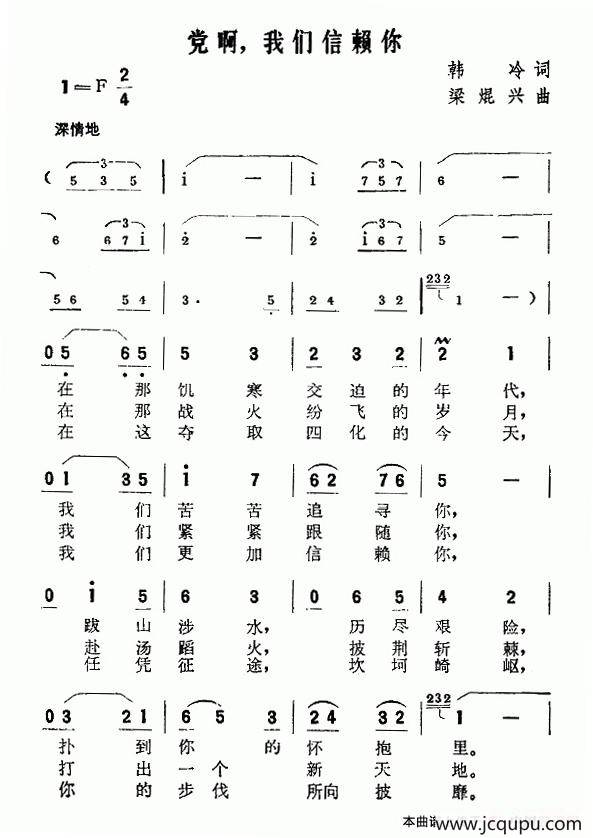 党啊，我们信赖你
1=F 2/4
韩 冷 词
梁 焜 兴 曲
深情地
( 5 3 5 | i — | i 7 5 7 | 6 — |
6 6 7 i | 2 — | 2 i 6 7 | 5 — |
5 6 5 4 | 3. 5 | 2 4 3 2 | 232 1 — )
0 5 6 5 | 5 3 | 2 3 2 | 2 1 |
在 那 饥 寒 交 迫 的 年 代，
在 那 战 火 纷 飞 的 岁 月，
在 这 夺 取 四 化 的 今 天，
0 1 3 5 | i 7 | 6 2 7 6 | 5 — |
我 们 苦 苦 追 寻 你，
我 们 紧 紧 跟 随 你，
我 们 更 加 信 赖 你，
0 i 5 | 6 3 | 0 6 5 | 4 2 |
跋 山 涉 水， 历 尽 艰 险，
赴 汤 蹈 火， 披 荆 斩 棘，
任 凭 征 途， 坎 坷 崎 岖，
0 3 2 1 | 6 5 3 | 2 4 3 2 | 232 1 — |
扑 到 你 的 怀 抱 里。
打 出 一 个 新 天 地。
你 的 步 伐 所 向 披 靡。
本曲谱
www.jcqupu.com